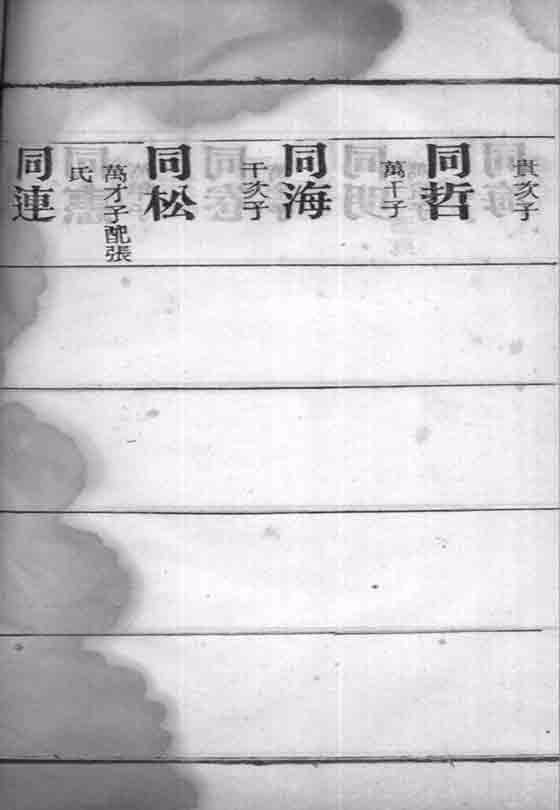 貴亥子
同哲
萬千子
同海
干亥子
同松
萬才子配張
氏
同連